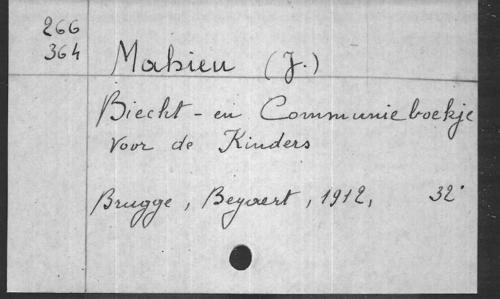 266
364
Mahieu (J.)
Biecht - en Communieboekje
voor de Kinders
Brugge, Beyaert, 1912, 32°